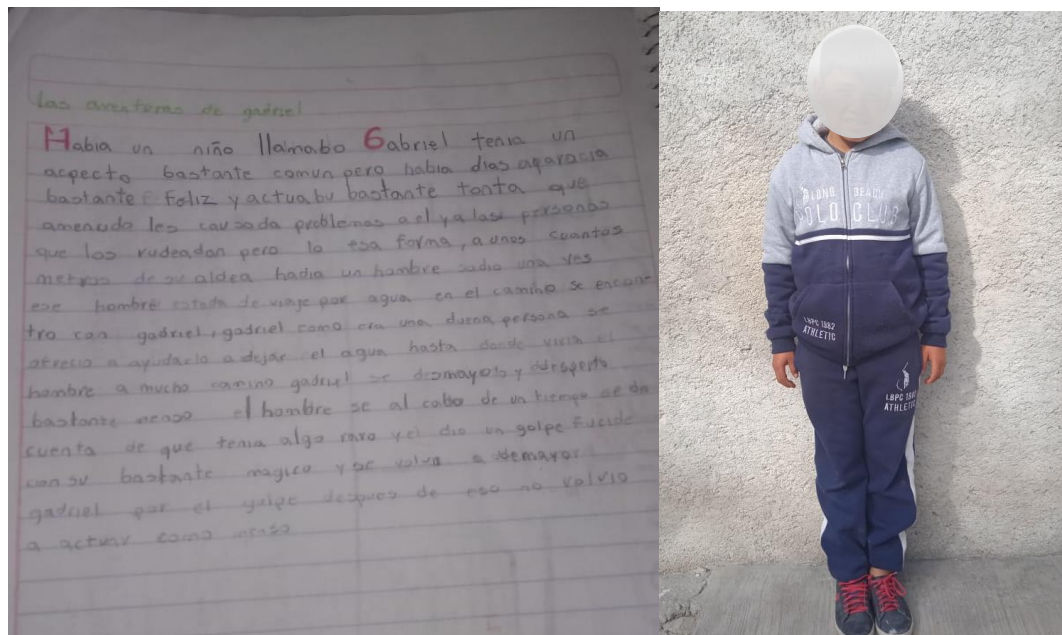 las aventuras de gadriel
Habia un niño llamabo Gabriel tenia un
acpecto bastante comun pero habia dias aparacia
bastante Feliz y actuabu bastante tonta que
amenudo les causada problemas a el y a las personas
que los rudeadan pero lo esa forma, a unos cuantos
metros de su aldea hadia un hombre sadio una ves
ese hombre estada de viaje por agua en el camino se encon
tro con gadriel, gadriel como era una duena persona se
ofrecio a ayudarlo a dejar el agua hasta donde vivia el
hombre a mucho camino gadriel se dismayoto y despserto
bastante menso el hombre se al cabo de un tiempo se da
cuenta de que tenia algo raro y el dio un golpe Fuerde
con su bastante magico y se volvo a demayar
gadriel por el golpe despues de eso no volvio
a actuar como menso
LONG BEACH
POLO CLUB
LBPC 1982
ATHLETIC
LBPC 1982
ATHLETIC